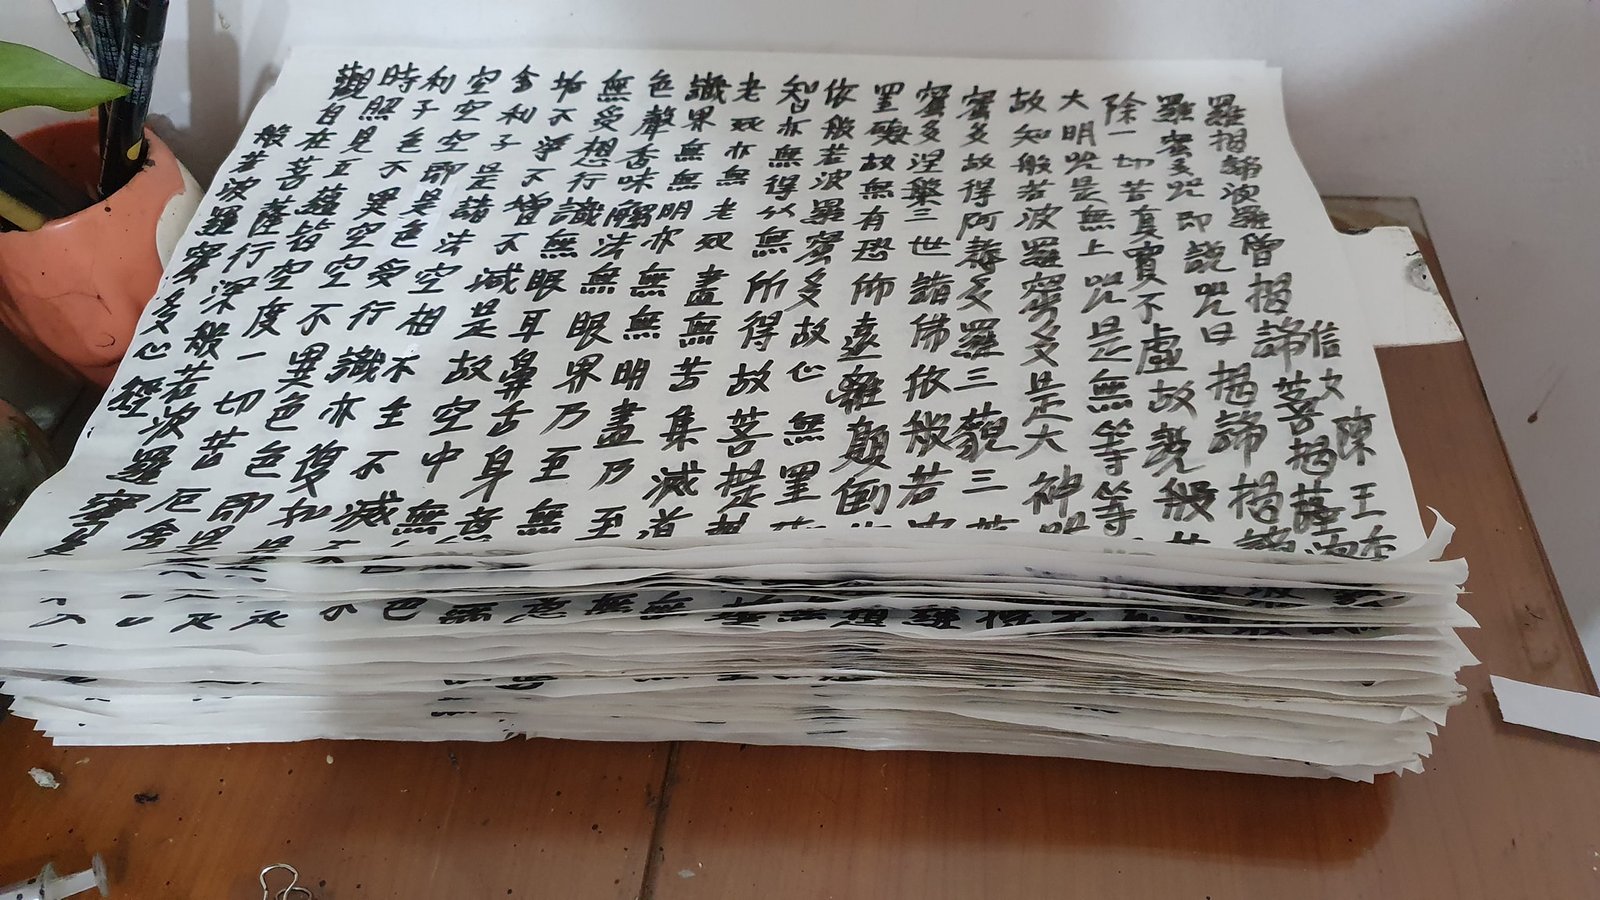 般若波羅蜜多心經
觀自在菩薩行深般若波羅蜜多
時照見五蘊皆空度一切苦厄舍
利子色不異空空不異色色即是
空空即是色受行識亦復如是
舍利子是諸法空相不生不滅不
垢不淨不增不減是故空中無色
無受想行識無眼耳鼻舌身意無
色聲香味觸法無眼界乃至無
識界無無明亦無無明盡乃至
老死亦無老死盡無苦集滅道
智亦無得以無所得故菩提
依般若波羅蜜多故心無罣
罣礙故無有恐怖遠離顛倒
蜜多涅槃三世諸佛依般若波
蜜多故得阿耨多羅三藐三菩
故知般若波羅蜜多是大神咒
大明咒是無上咒是無等等
除一切苦真實不虛故說般若
羅蜜多咒即說咒曰揭諦揭諦
羅揭諦波羅僧揭諦菩揭薩
信女陳王